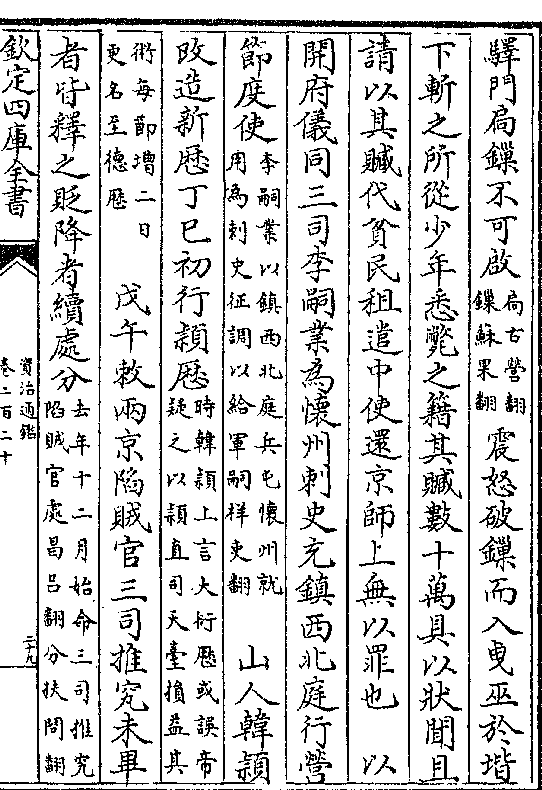 驛門扃鏁不可啟扃古螢翻鏁蘇果翻震怒破鏁而入曵巫於堦
下斬之所從少年悉斃之籍其贓數十萬具以狀聞且
請以其贓代貧民租遣中使還京師上無以罪也　以
開府儀同三司李嗣業為懷州刺史充鎮西北庭行營
節度使李嗣業以鎮西北庭兵屯懷州就用為刺史征調以給軍嗣祥吏翻　山人韓頴
改造新歴丁巳初行頴歴時韓頴上言大衍歴或誤帝疑之以頴直司天臺損益其
術每節增二日更名至德歴　戊午敕兩京陷賊官三司推究未畢
者皆釋之貶降者續處分去年十二月始命三司推究陷賊官處昌呂翻分扶問翻
欽定四庫全書
資治通鑑
卷二百二十
二十九